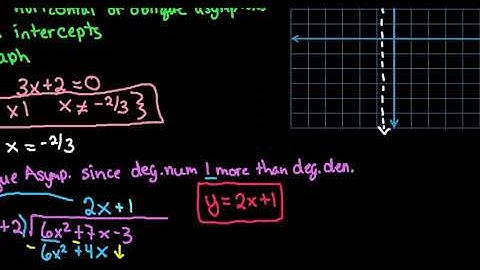 horizontal or oblique asymptote
intercepts
3x+2=0
x | x ≠ -2/3 }
x = -2/3
Asymp. since deg. num 1 more than deg. den.
2x+1
y = 2x+1
+2) 6x² + 7x - 3
- 6x² + 4x ↓